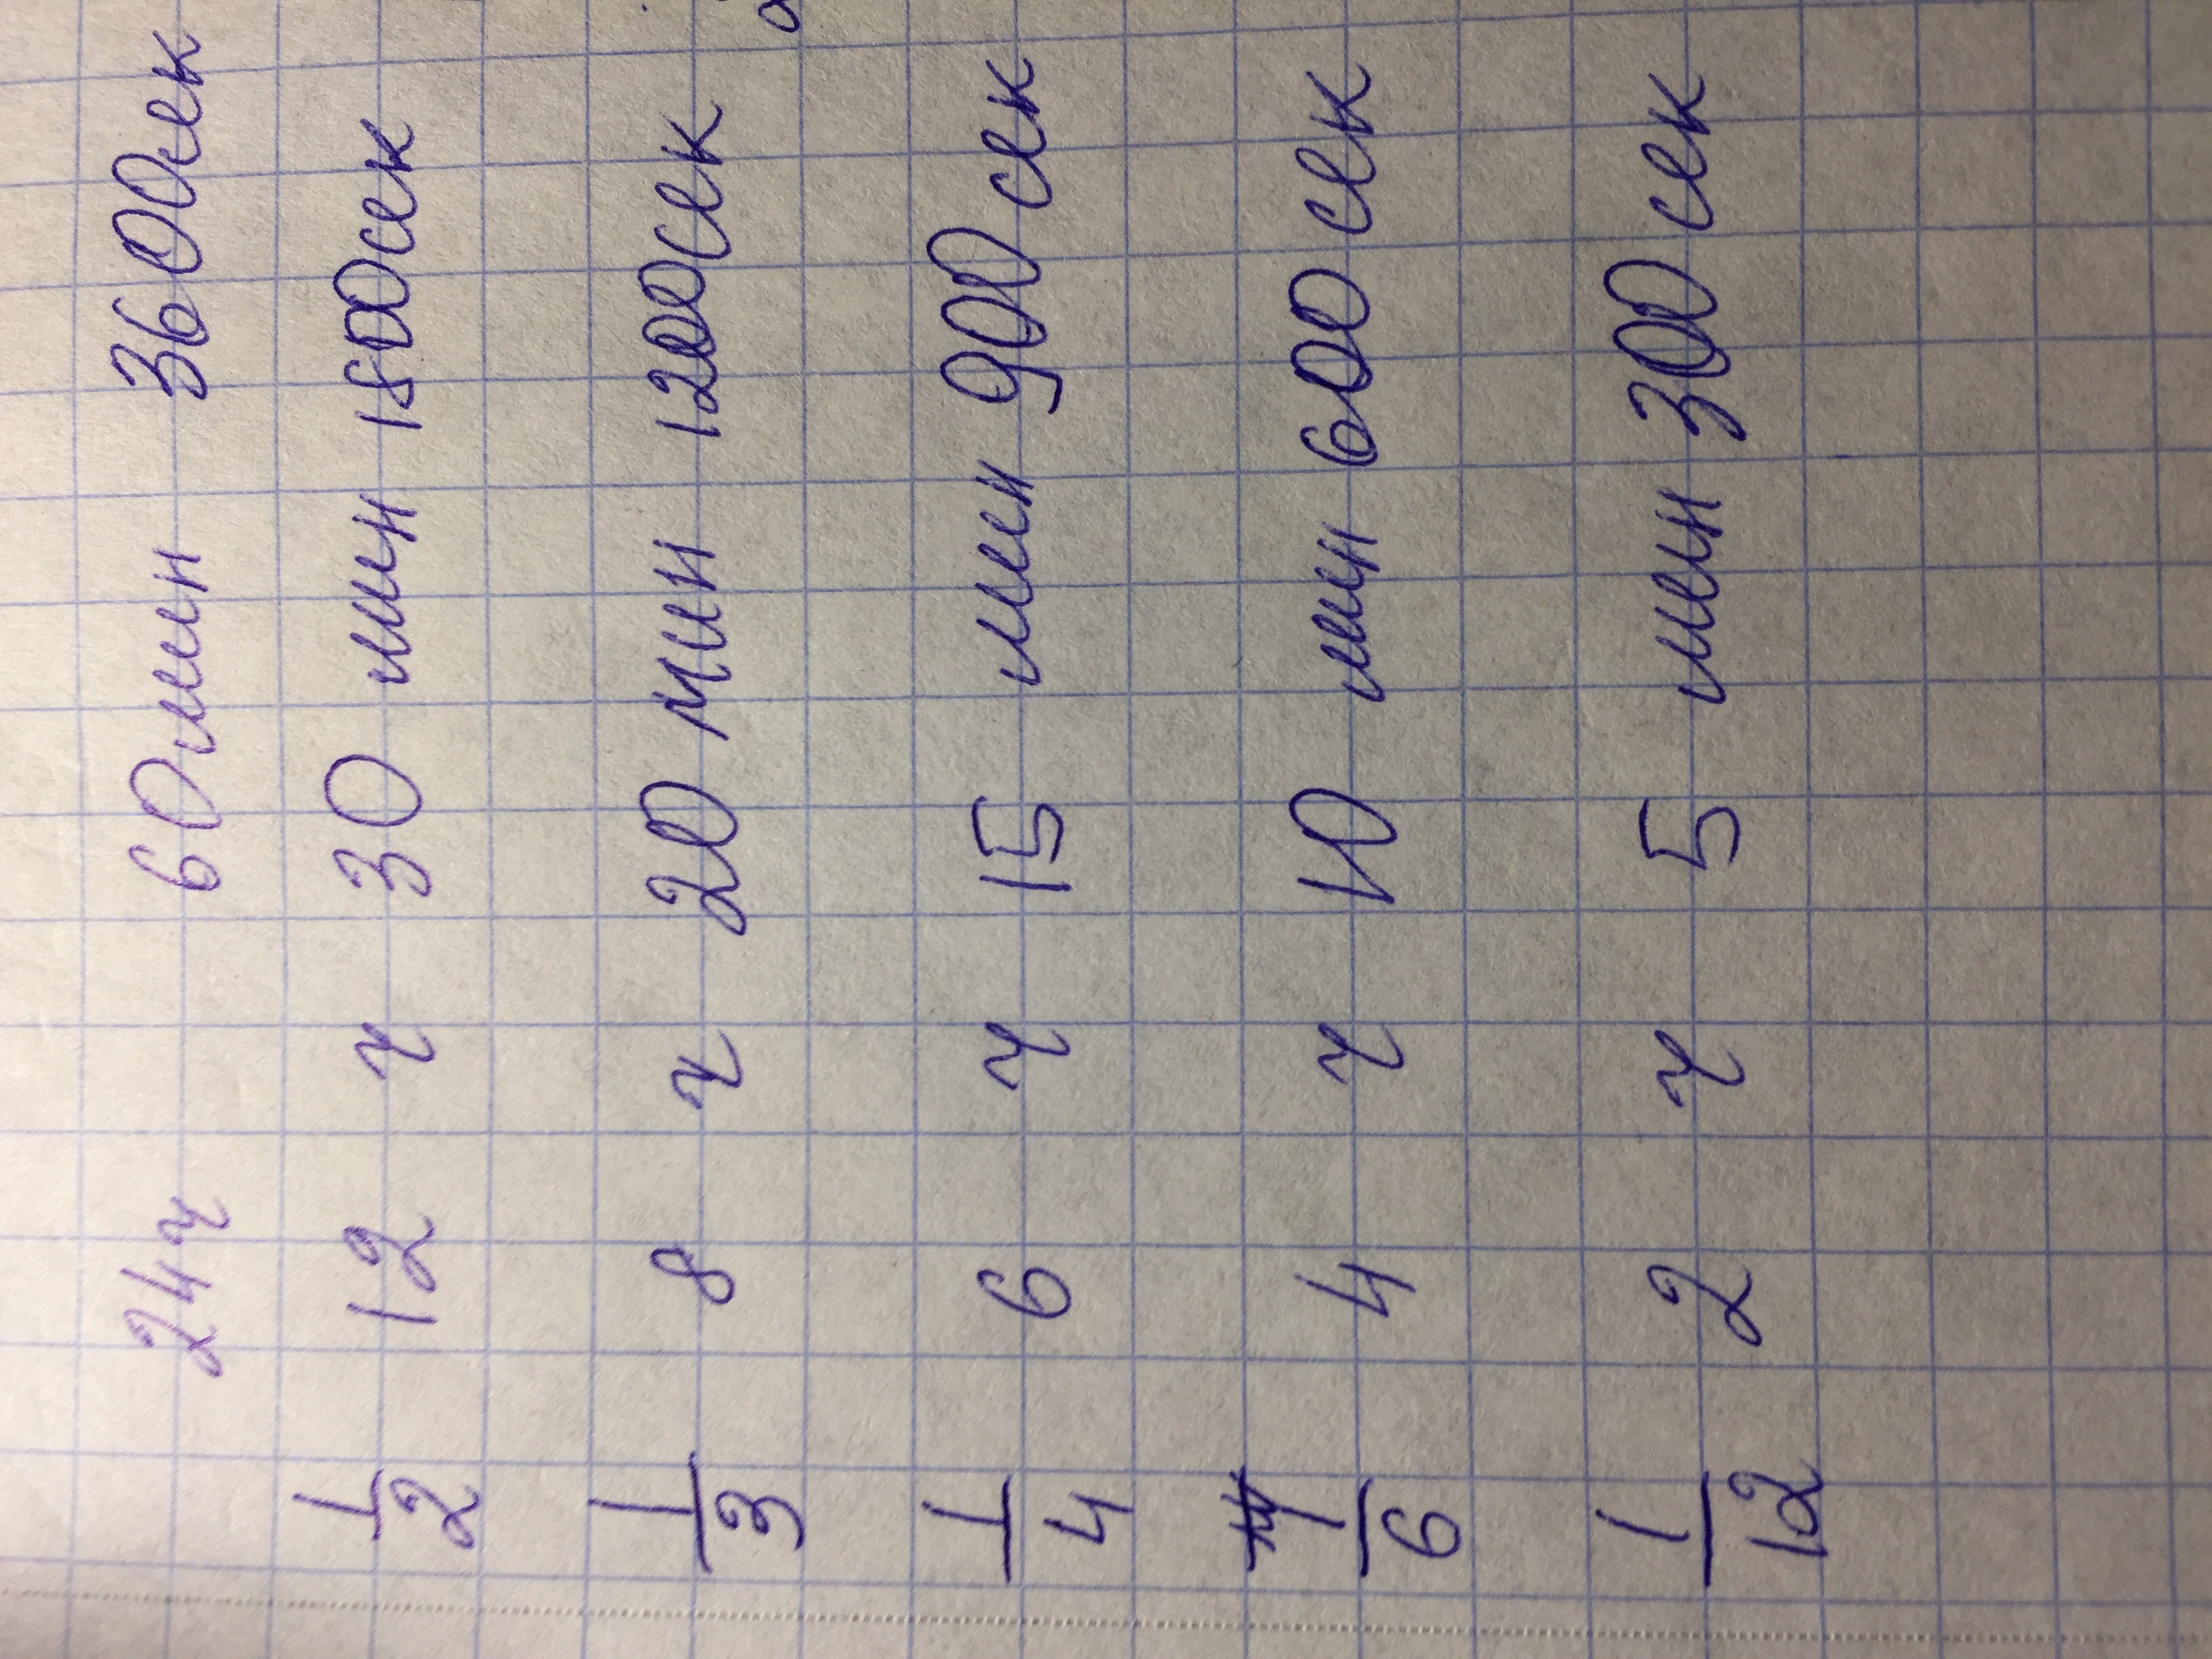 24ч 60мин 3600сек
1/2 12 ч 30 мин 1800сек
1/3 8 ч 20 мин 1200сек
1/4 6 ч 15 мин 900 сек
1/6 4 ч 10 мин 600 сек
1/12 2 ч 5 мин 300 сек